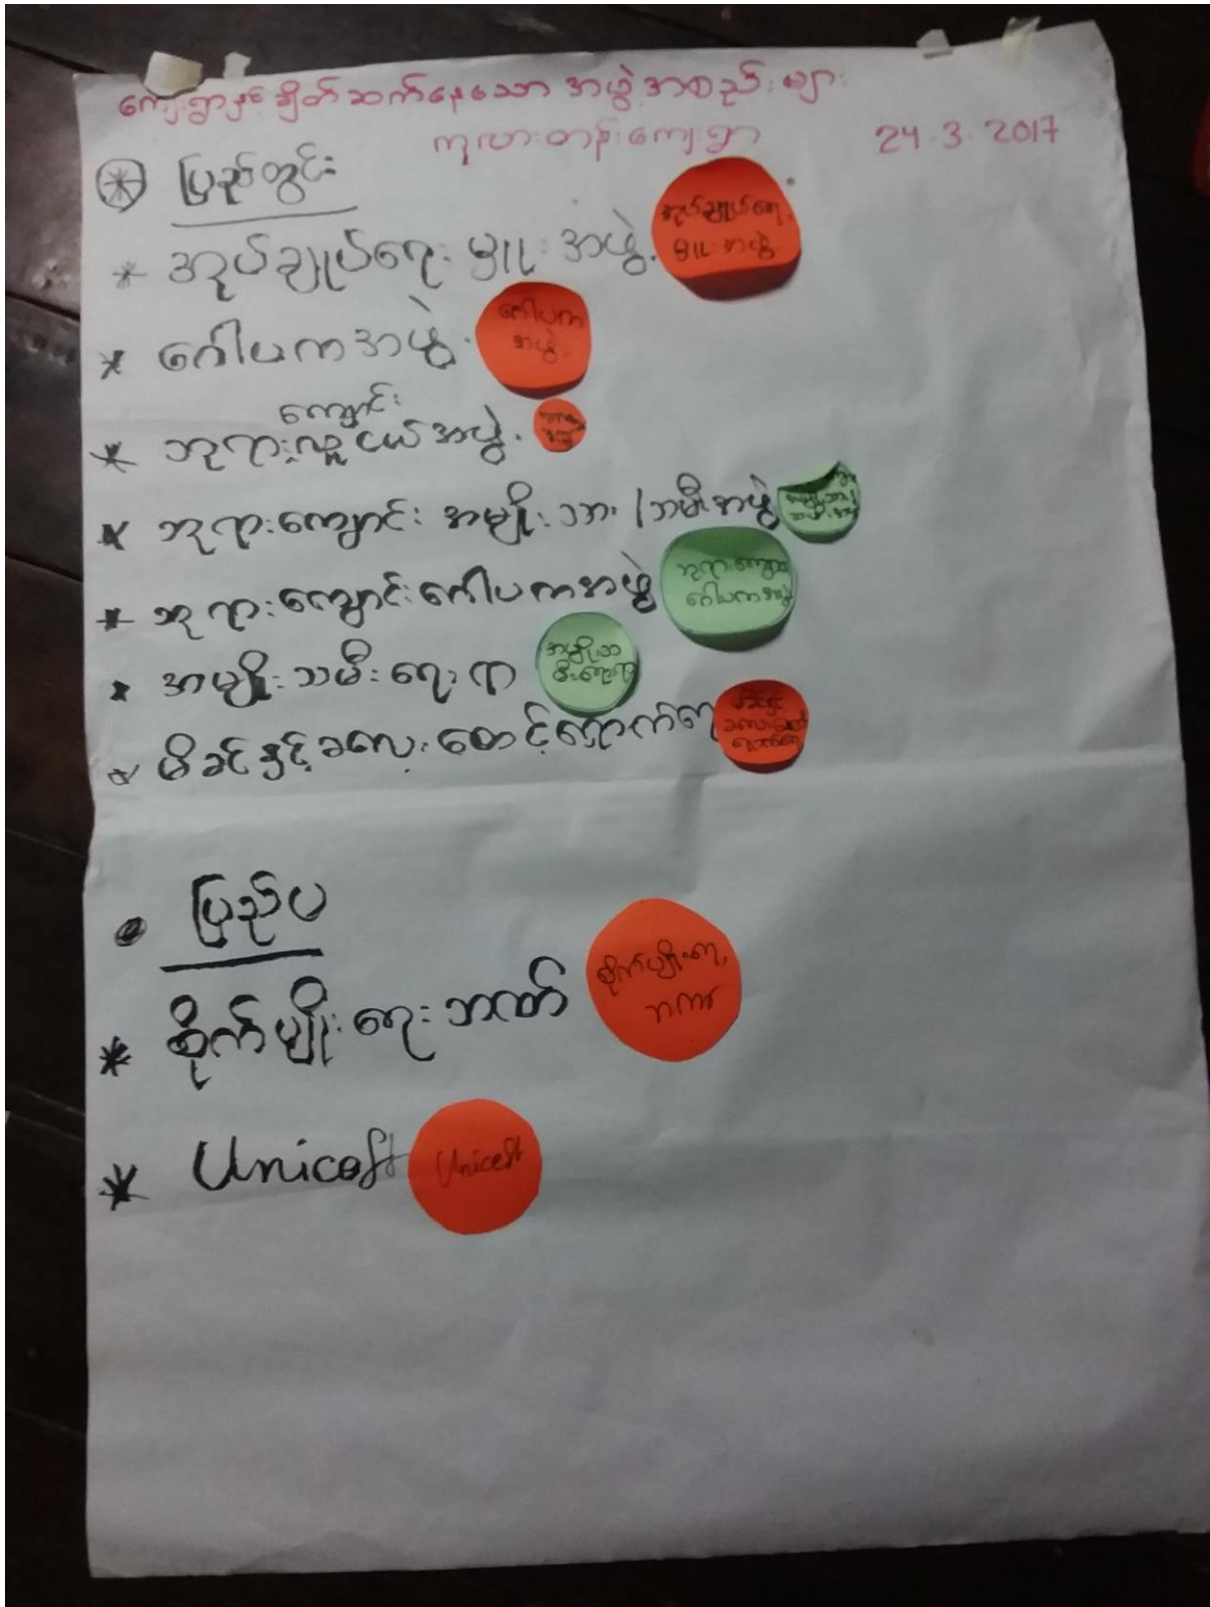 ကျေးရွာနှင့်ချိတ်ဆက်နေသောအဖွဲ့အစည်းများ
ကုလားတန်ကျေးရွာ 24.3.2017
ပြည်တွင်း
* အုပ်ချုပ်ရေးမှူးအဖွဲ့. အုပ်ချုပ်ရေး
မှူးအဖွဲ့
* ဂေါပကအဖွဲ့. ဂေါပက
အဖွဲ့
ကျောင်း
* ဘုရားလူငယ်အဖွဲ့.
* ဘုရားကျောင်းအမျိုးသား/သမီးအဖွဲ့
* ဘုရားကျောင်းဂေါပကအဖွဲ့ ဘုရားကျောင်း
ဂေါပကအဖွဲ့
* အမျိုးသမီးရေးရာ အမျိုးသ
မီးရေးရာ
* မိခင်နှင့်ခလေးစောင့်ရှောက်ရေး
ပြည်ပ
* စိုက်ပျိုးရေးဘဏ် စိုက်ပျိုးရေး
ဘဏ်
* Uniceft Uniceft